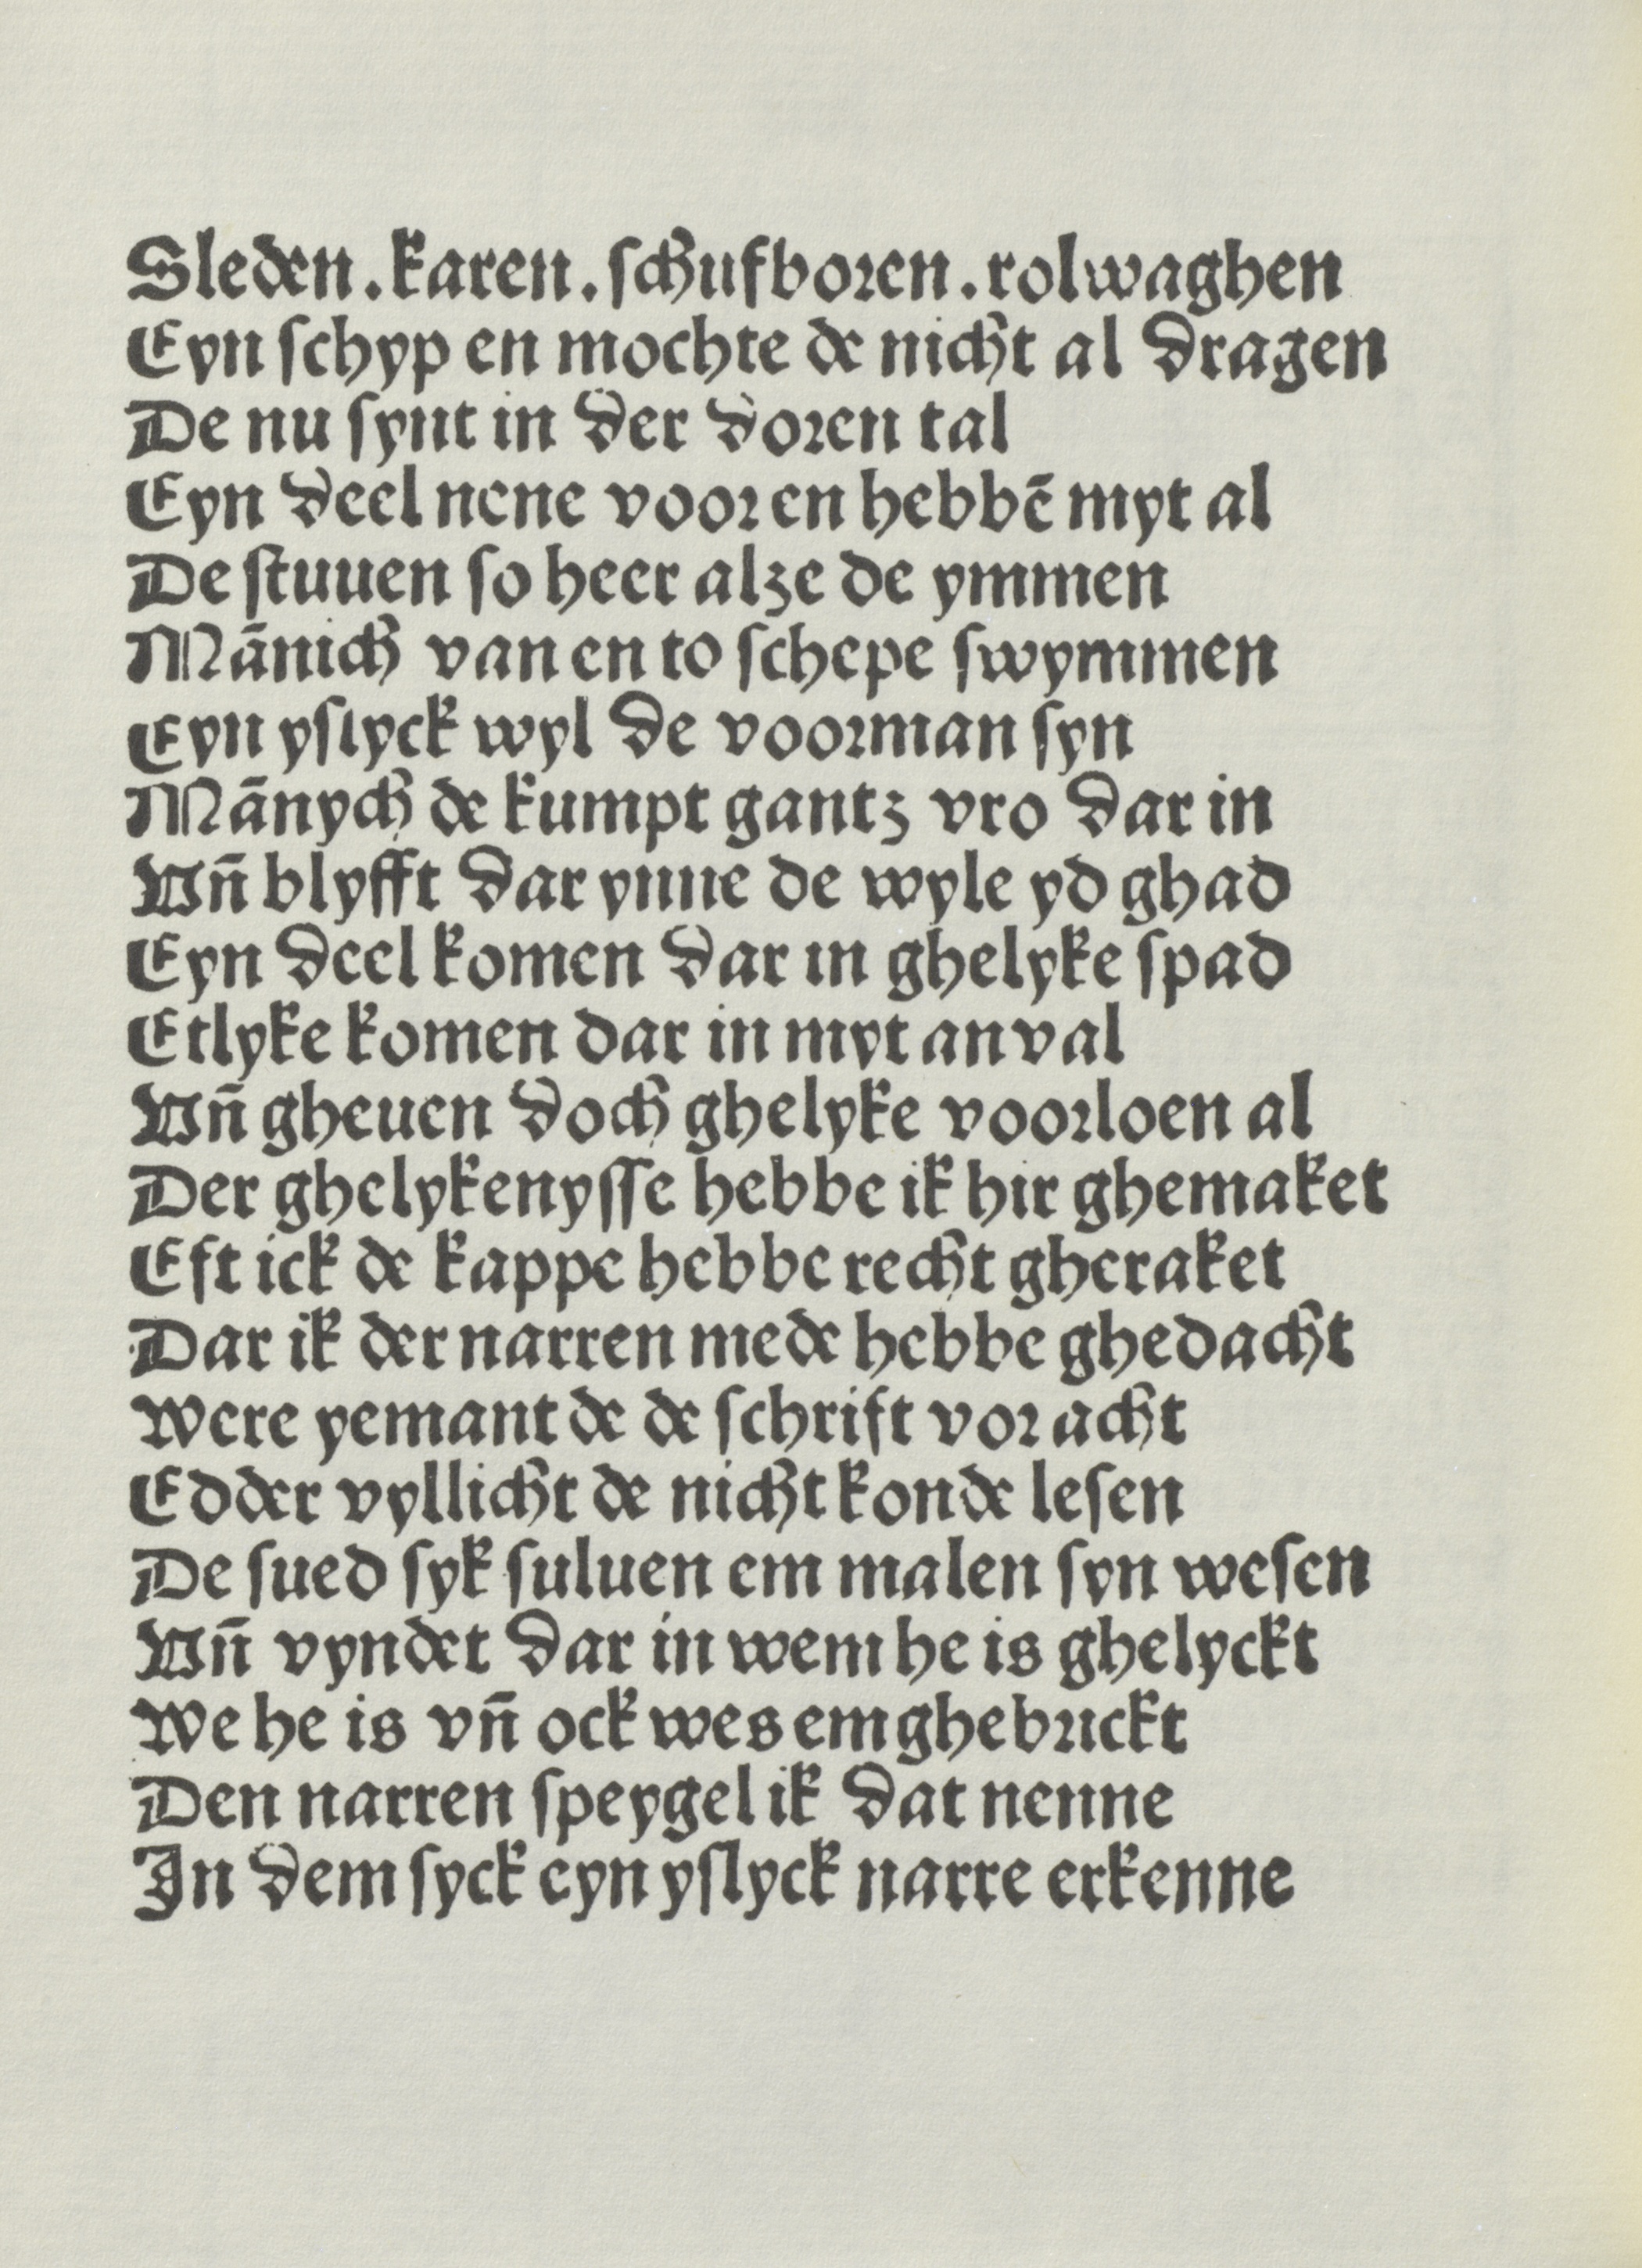 Sleden.karen.schufboren.rolwaghen
Eyn schyp en mochte de nicht al dragen
De nu synt in der doren tal
Eyn deel nene vooren hebbē myt al
De stuuen so heer alze de ymmen
Mānich van en to schepe swymmen
Eyn yslyck wyl de voorman syn
Mānych de kumpt gantz vro dar in
Vn̄ blyfft dar ynne de wyle yd ghad
Eyn deel komen dar in ghelyke spad
Etlyke komen dar in myt anval
Vn̄ gheuen doch ghelyke voorloen al
Der ghelykenysse hebbe ik hir ghemaket
Eft ick de kappe hebbe recht gheraket
Dar ik der narren mede hebbe ghedacht
Were yemant de de schrift vor acht
Edder vyllicht de nicht konde lesen
De sued syk suluen em malen syn wesen
Vn̄ vyndet dar in wem he is ghelyckt
We he is vn̄ ock wes em ghebrickt
Den narren speygel ik dat nenne
In dem syck eyn yslyck narre erkenne